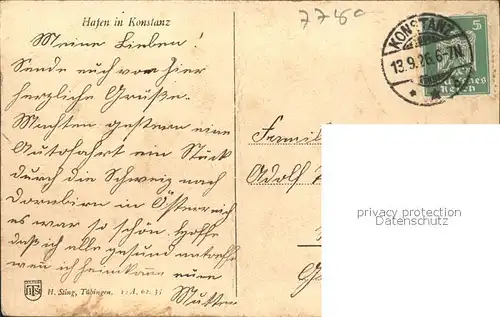 Hafen in Konstanz
7780
Meine Lieben!
Sende euch von hier
herzliche Grüße.
Machten gestern eine
Autofahrt ein Stück
durch die Schweiz nach
Dornbirn in Österreich
es war so schön. Hoffe
daß ich alle gesund antreffe
wen ich heimkomme eure
Mutter
H. Sting, Tübingen.
KONSTANZ
13.9.26.6-7N
5
Famil
Adolf
privacy protection
Datenschutz